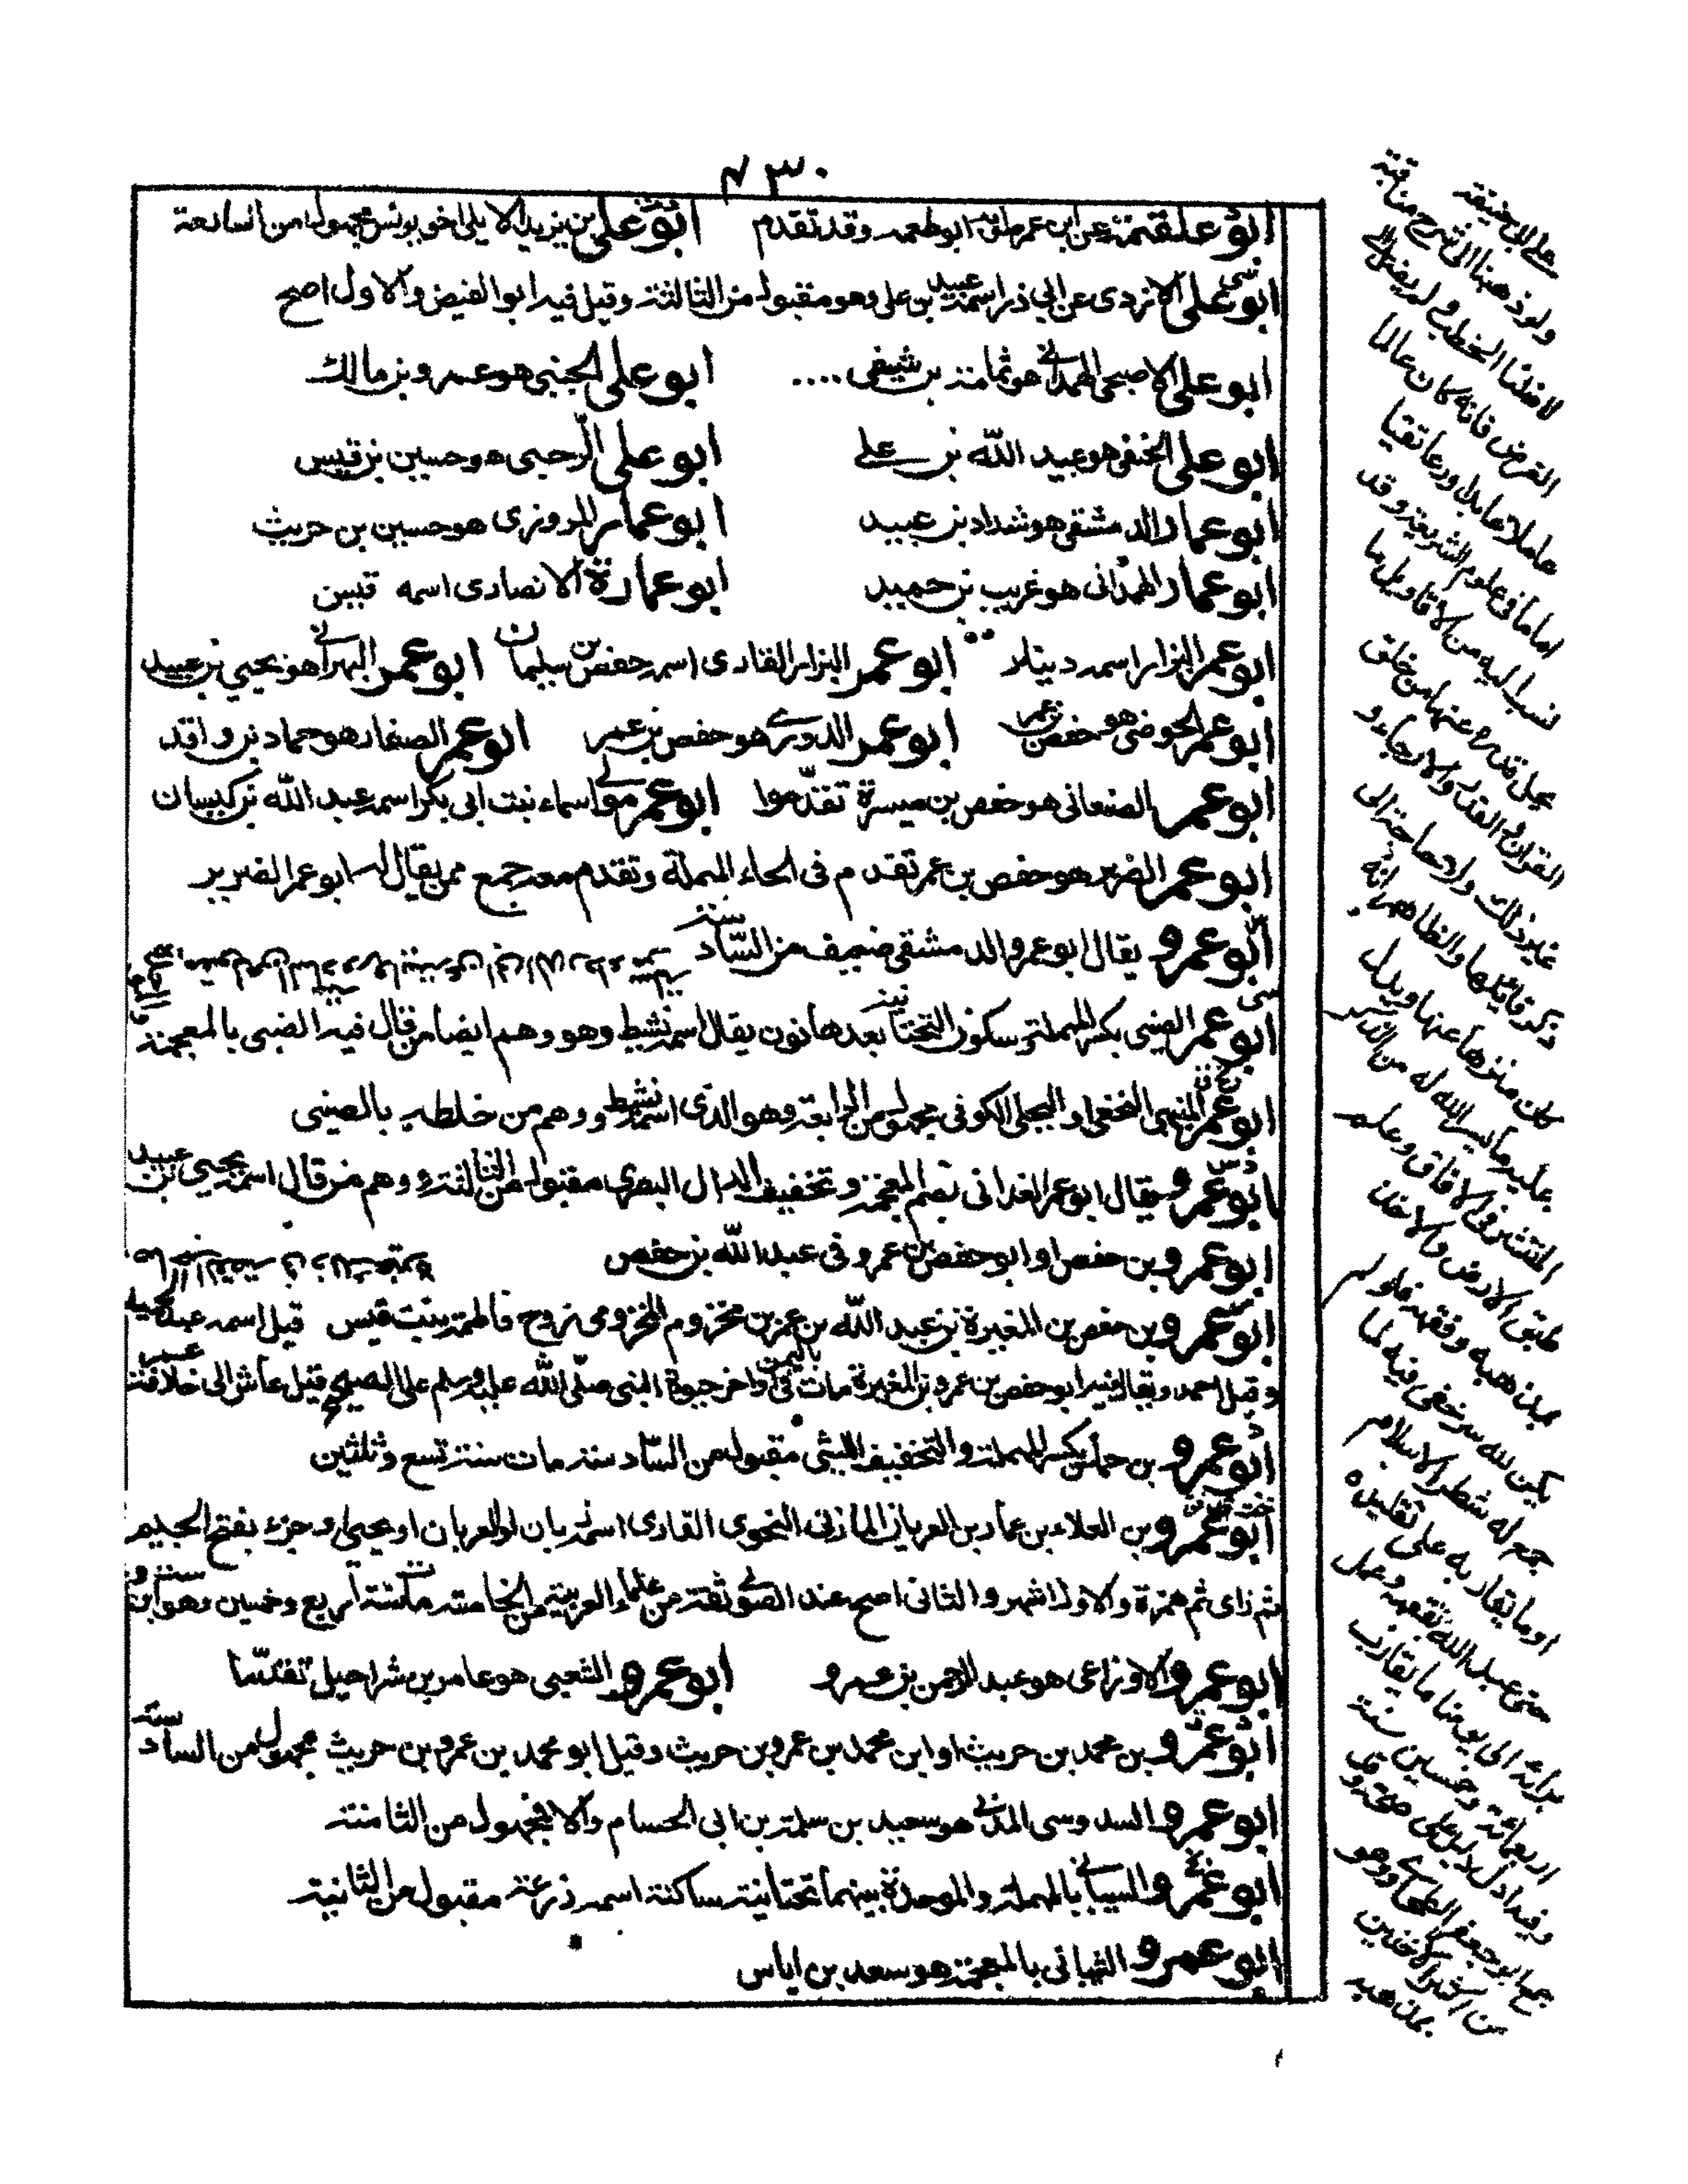 ٤٣٠
ابو علقمة عن ابن عمر ابو طعمه وقد تقدم ابو على بن يزيد الايلى اخو يونس مجهول من السابعة
ابو على الازدى عن ابي ذر اسمه عبيد بن على وهو مقبول من الثالثة وقيل فيه ابو الفيض والاول اصح
ابو على الاصبحى الهمدانى هو ثمامة بن شفى .... ابو على الجنبى هو عمرو بن مالك
ابو على الحنفى هو عبيد الله بن على ابو على الرحبى هو حسين بن قيس
ابو عمار الدمشقى هو شداد بن عبيد ابو عمار المروزى هو حسين بن حريث
ابو عمار الهمدانى هو غريب بن حميد ابو عمارة الانصارى اسمه قيس
ابو عمر البزار اسمه دينار ابو عمر البزار القارى اسمه حفص بن سليمان ابو عمر البهرانى هو يحيى بن عبيد
ابو عمر الحوضى هو حفص بن عمر ابو عمر الدورى هو حفص بن عمر ابو عمر الصفار هو حماد بن واقد
ابو عمر الصنعانى هو حفص بن ميسرة تقدموا ابو عمر مولى اسماء بنت ابى بكر اسمه عبد الله بن كيسان
ابو عمر الضرير هو حفص بن عمر تقدم فى الحاء المهملة وتقدم معه جمع ممن يقال له ابو عمر الضرير
ابو عمرو يقال ابو عمرو الدمشقى ضعيف من السادسة
ابو عمر الصينى بكسر المهملة وسكون التحتانية بعدها نون يقال اسمه نشيط وهو وهم ايضا من قال فيه الضبى بالمعجمة
ابو عمر المنبهى النخعى او البجلى الكوفى مجهول من الرابعة وهو الذى اسمه نشيط ووهم من خلطه بالصينى
ابو عمرو ويقال ابو عمر الغدانى بضم المعجمة وتخفيف الدال البصرى مقبول من الثالثة ووهم من قال اسمه يحيى بن عبيد
ابو عمرو بن حفص او ابو حفص بن عمرو فى عبد الله بن حفص
ابو عمرو بن حفص بن المغيرة بن عبد الله بن عمر بن مخزوم المخزومى زوج فاطمة بنت قيس قيل اسمه عبد الحميد
وقيل احمد ويقال فيه ابو حفص بن عمرو بن المغيرة مات باليمن فى اواخر حيوة النبى صلى الله عليه وسلم على الصحيح وقيل عاش الى خلافة عمر
ابو عمرو بن حماس بكسر المهملة والتخفيف الليثى مقبول من السادسة مات سنة تسع وثلثين
ابو عمرو بن العلاء بن عمار بن العريان المازنى النحوى القارى اسمه زبان او العريان او يحيى او جزء بفتح الجيم
ثم زاى ثم همزة والاول اشهر والثانى اصح عند الصولى ثقة من علماء العربية من الخامسة مات سنة اربع وخمسين وهو ابن ست و
ابو عمرو الاوزاعى هو عبد الرحمن بن عمرو ابو عمرو الشعبى هو عامر بن شراحيل تقدما
ابو عمرو بن محمد بن حريث او ابن محمد بن عمرو بن حريث وقيل ابو محمد بن عمرو بن حريث مجهول من السادسة
ابو عمرو السدوسى المدنى هو سعيد بن سلمة بن ابى الحسام والا فمجهول من الثامنة
ابو عمرو السيبانى بالمهملة والموحدة بينهما تحتانية ساكنة اسمه زرعة مقبول من الثانية
ابو عمرو الشيبانى بالمعجمة هو سعد بن اياس
على ابى حنيفة
ولو ذهبنا الى شرح مناقبه
لاطلنا الخطب ولم نصل الى
الغرض فانه كان عالما
عاملا عابدا ورعا تقيا
اماما فى علوم الشريعة وقد
نسب اليه من الاقاويل ما
يجل قدره عنها من خلق
القرآن والقدر والارجاء و
غير ذلك ولا حاجة الى
ذكر قائلها والظاهر انه
كان منزها عنها ويدل
عليه ما يسر الله له من الذكر
المنتشر فى الآفاق وعلمه
طبق الارض والاخذ
بمذهبه وفقهه فلو لم
يكن لله سر خفى فيه لما
جمع له شطر الاسلام
او ما يقاربه على تقليده
حتى عبد الله بفقهه وعمل
برايه الى يومنا ما يقارب
اربعمائة وخمسين سنة
وفيه ادل دليل على صحته وقد
جمع ابو جعفر الطحاوى وهو
من اكبر الآخذين
بمذهبه